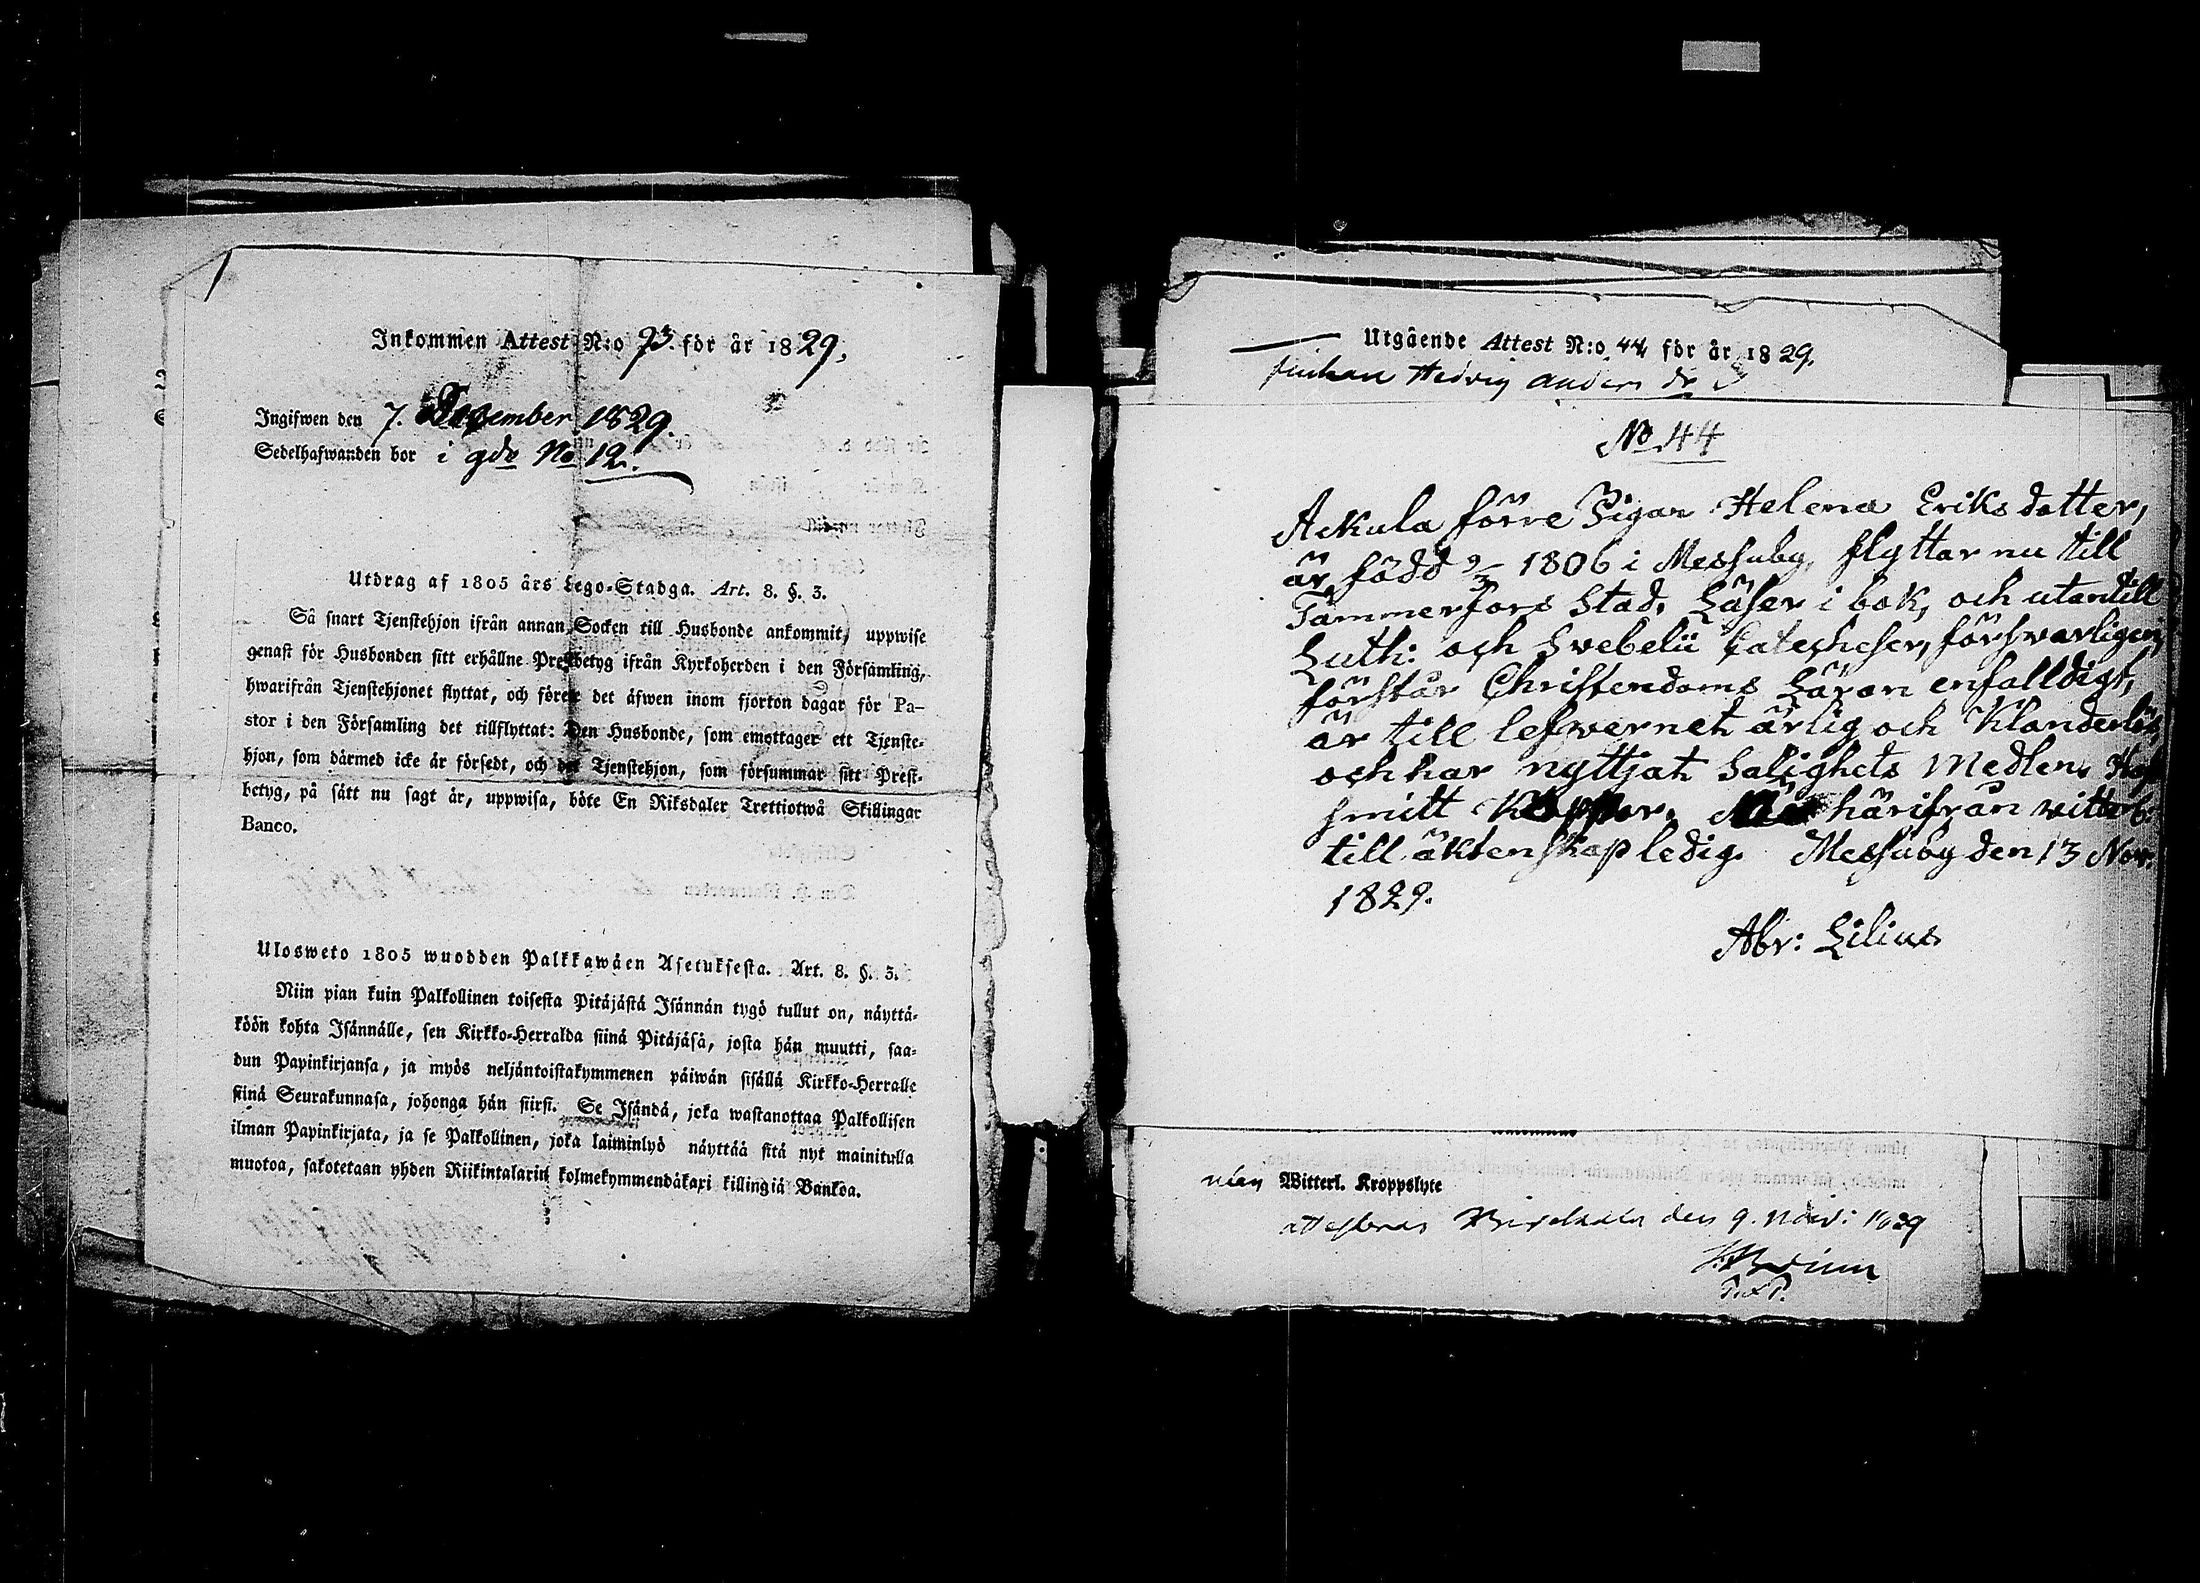 Inkommen Attest N:o 73. för år 1829.
Ingifwen den 7. December 1829.
Sedelhafwanden bor i gde No 12.
Utdrag af 1805 års Lego-Stadga. Art. 8. §. 3.
Så snart Tjenstehjon ifrån annan Socken till Husbonde ankommit, uppwise
genast för Husbonden sitt erhållne Prestbetyg ifrån Kyrkoherden i den Församling,
hwarifrån Tjenstehjonet flyttat, och förete det äfwen inom fjorton dagar för Pa-
stor i den Församling det tillflyttat: Den Husbonde, som emottager ett Tjenste-
hjon, som därmed icke är försedt, och det Tjenstehjon, som försummar sitt Prest-
betyg, på sätt nu sagt är, uppwisa, böte En Riksdaler Trettiotwå Skillingar
Banco.
Ulosweto 1805 wuodden Palkkawäen Asetuksesta. Art. 8. §. 3.
Niin pian kuin Palkollinen toisesta Pitäjästä Isännän tygö tullut on, näyttä-
köön kohta Isännälle, sen Kirkko-Herralda siinä Pitäjäsä, josta hän muutti, saa-
dun Papinkirjansa, ja myös neljäntoistakymmenen päiwän sisällä Kirkko-Herralle
siinä Seurakunnasa, johonga hän siirsi. Se Isändä, joka wastanottaa Palkollisen
ilman Papinkirjata, ja se Palkollinen, joka laiminlyö näyttää sitä nyt mainitulla
muotoa, sakotetaan yhden Riikintalarin kolmekymmendäkaxi killingiä Bankoa.
Utgående Attest N:o 44 för år 1829.
Hedvig Anders dr
No 44
Ackula förre Pigan Helena Eriksdotter,
är född 9/3 1806 i Messuby, flyttar nu till
Tammerfors Stad, Läser i bok, och utantill
Luth: och Svebelii Catecheser, försvarligen,
förstår Christendoms Läran enfalldigt,
är till lefvernet ärlig och Klanderlös,
och har nyttjat Salighets Medlen, Haf
smitt Koppor, härifrån vitterl.
till äktenskap ledig. Messuby den 13 Nov.
1829.
Abr: Lilius
Witterl. Kroppslyte
attesteras Birckala den 9. Nov: 1829